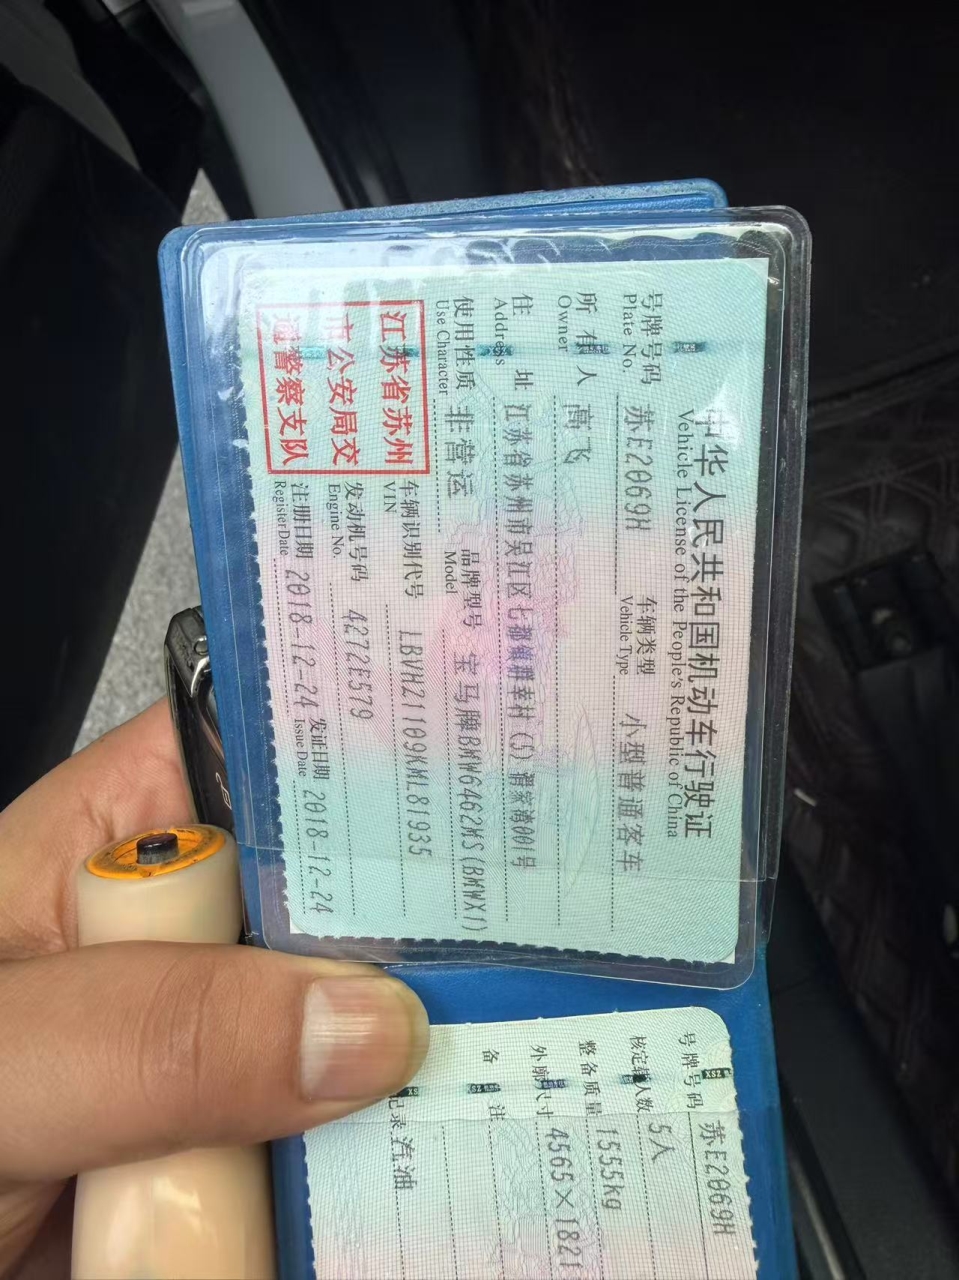 中华人民共和国机动车行驶证
Vehicle License of the People's Republic of China
号牌号码 苏E2069H 车辆类型 小型普通客车
Plate No. Vehicle Type
所有人 高飞
Owner
住址 江苏省苏州市吴江区七都镇群幸村(5)谓家湾001号
Address
使用性质 非营运 品牌型号 宝马牌BMW6462MS(BMWX1)
Use Character Model
江苏省苏州
市公安局交
通警察支队
车辆识别代号 LBVHZ1109KML81935
VIN
发动机号码 4272E579
Engine No.
注册日期 2018-12-24 发证日期 2018-12-24
Register Date Issue Date
号牌号码 苏E2069H
核定载人数 5人
整备质量 1555kg
外廓尺寸 4565×1821
备注
记录 汽油